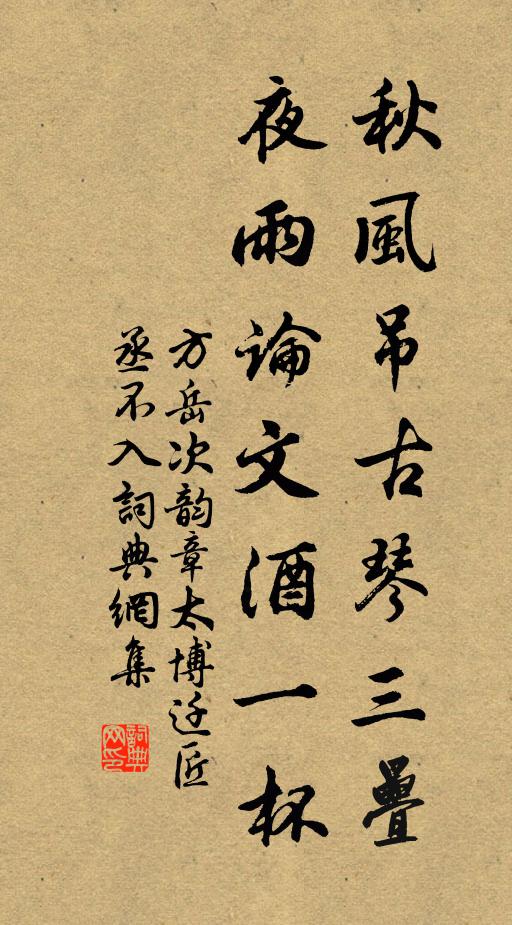 秋風吊古琴三疊
夜雨論文酒一杯
方岳次韵章太博迁匠
丞不入詞典網集
詞典网印